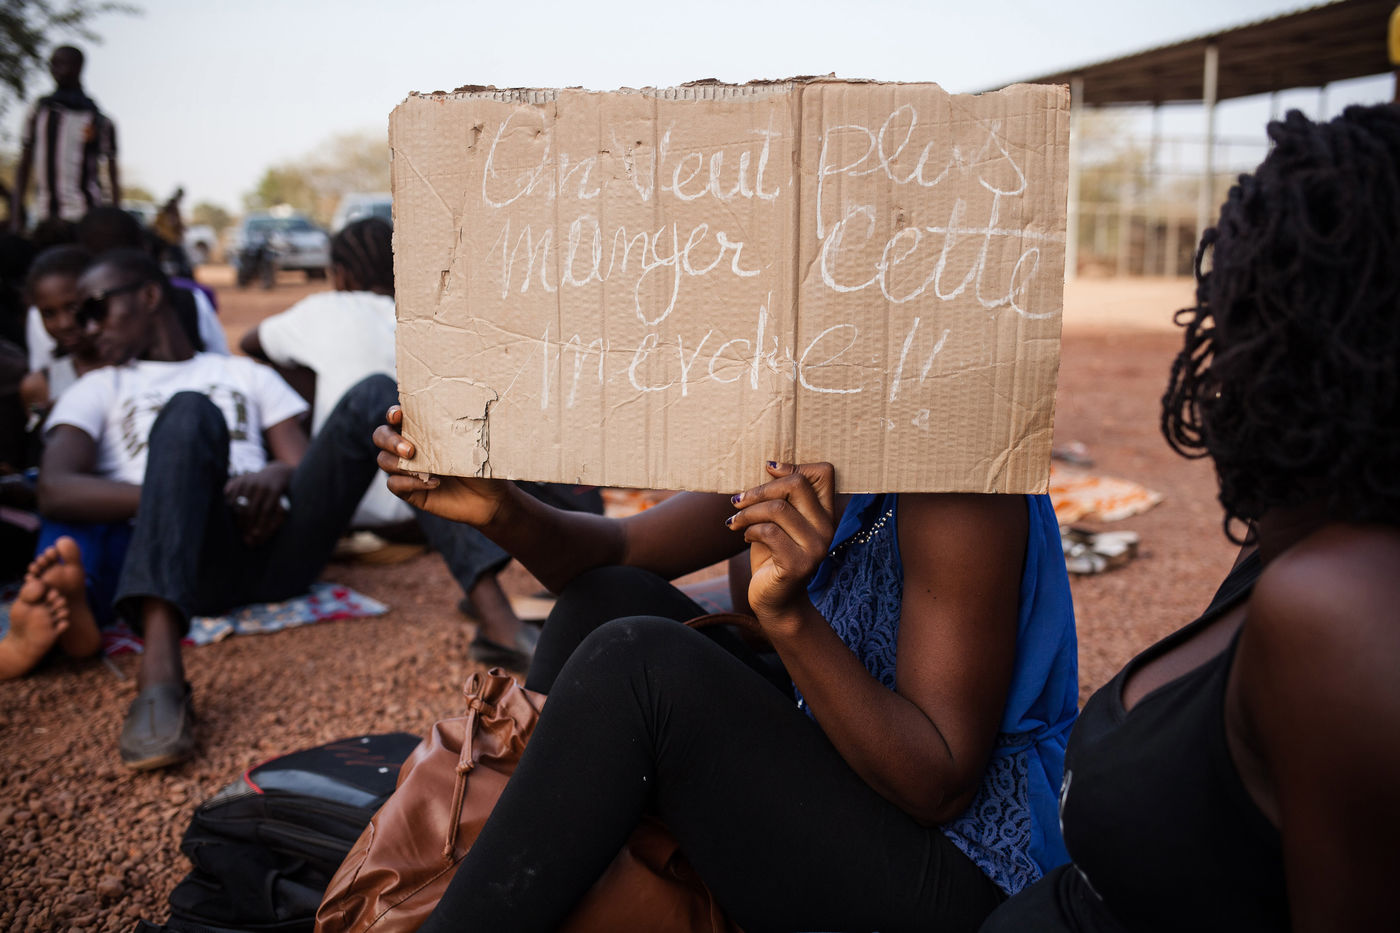 On Veut plus
manger Cette
merde !!